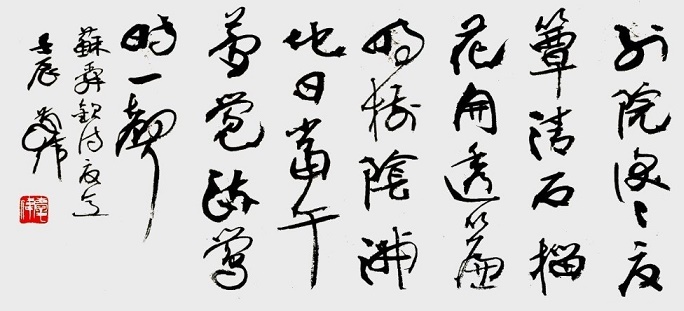 別院深々夏
簟清石榴
花開透簾
明樹陰滿
地日當午
夢覺流鶯
時一聲
蘇舜欽詩夏意
壬辰